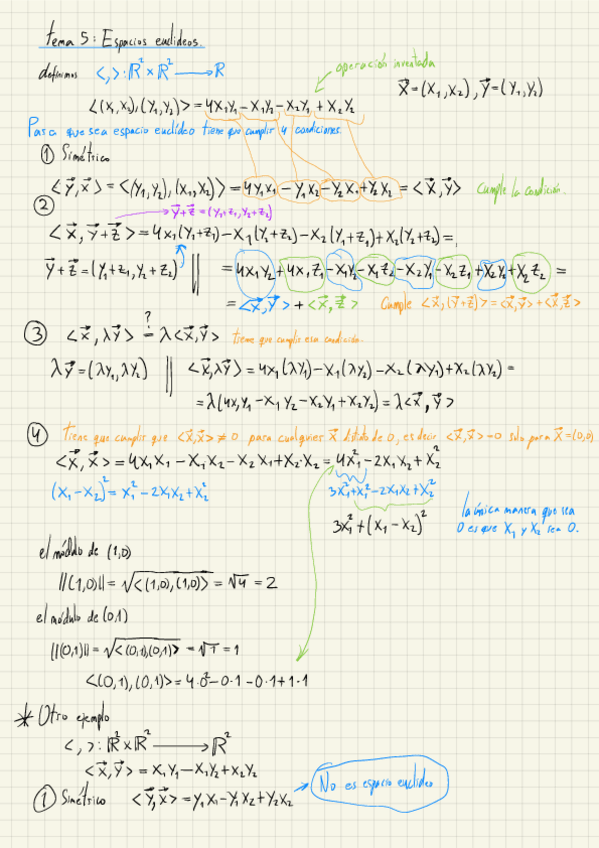 tema 5: Espacios euclídeos.
definimos <,>: ℝ² x ℝ² ⟶ ℝ
operación inventada
X⃗=(X₁,X₂), Y⃗=(Y₁,Y₂)
<(X₁,X₂),(Y₁,Y₂)> = 4X₁Y₁ - X₁Y₂ - X₂Y₁ + X₂Y₂
Para que sea espacio euclídeo tiene que cumplir 4 condiciones
① Simétrico
<Y⃗,X⃗> = <(Y₁,Y₂),(X₁,X₂)> = 4Y₁X₁ - Y₁X₂ - Y₂X₁ + Y₂X₂ = <X⃗,Y⃗> Cumple la condición.
②
Y⃗+Z⃗ = (Y₁+Z₁, Y₂+Z₂)
<X⃗, Y⃗+Z⃗> = 4X₁(Y₁+Z₁) - X₁(Y₂+Z₂) - X₂(Y₁+Z₁) + X₂(Y₂+Z₂) =
Y⃗+Z⃗ = (Y₁+Z₁, Y₂+Z₂) || = 4X₁Y₂ + 4X₁Z₁ - X₁Y₂ - X₁Z₂ - X₂Y₁ - X₂Z₁ + X₂Y₂ + X₂Z₂ =
= <X⃗,Y⃗> + <X⃗,Z⃗> Cumple <X⃗,(Y⃗+Z⃗)> = <X⃗,Y⃗> + <X⃗,Z⃗>
③ <X⃗, λY⃗> ≟ λ<X⃗,Y⃗> tiene que cumplir esa condición.
λY⃗ = (λY₁, λY₂) || <X⃗,λY⃗> = 4X₁(λY₁) - X₁(λY₂) - X₂(λY₁) + X₂(λY₂) =
= λ(4X₁Y₁ - X₁Y₂ - X₂Y₁ + X₂Y₂) = λ<X⃗,Y⃗>
④ tiene que cumplir que <X⃗,X⃗> ≠ 0 para cualquier X⃗ distinto de 0, es decir <X⃗,X⃗> = 0 solo para X⃗ = (0,0)
<X⃗,X⃗> = 4X₁X₁ - X₁X₂ - X₂X₁ + X₂·X₂ = 4X₁² - 2X₁X₂ + X₂²
(X₁-X₂)² = X₁² - 2X₁X₂ + X₂²
3X₁² + X₁² - 2X₁X₂ + X₂²
3X₁² + (X₁-X₂)²
la única manera que sea
0 es que X₁ y X₂ sea 0.
el módulo de (1,0)
||(1,0)|| = √<(1,0),(1,0)> = √4 = 2
el módulo de (0,1)
||(0,1)|| = √<(0,1),(0,1)> = √1 = 1
<(0,1),(0,1)> = 4·0² - 0·1 - 0·1 + 1·1
* Otro ejemplo
<,>: ℝ² x ℝ² ⟶ ℝ²
<X⃗,Y⃗> = X₁Y₁ - X₁Y₂ + X₂Y₂
① Simétrico <Y⃗,X⃗> = Y₁X₁ - Y₁X₂ + Y₂X₂
No es espacio euclídeo